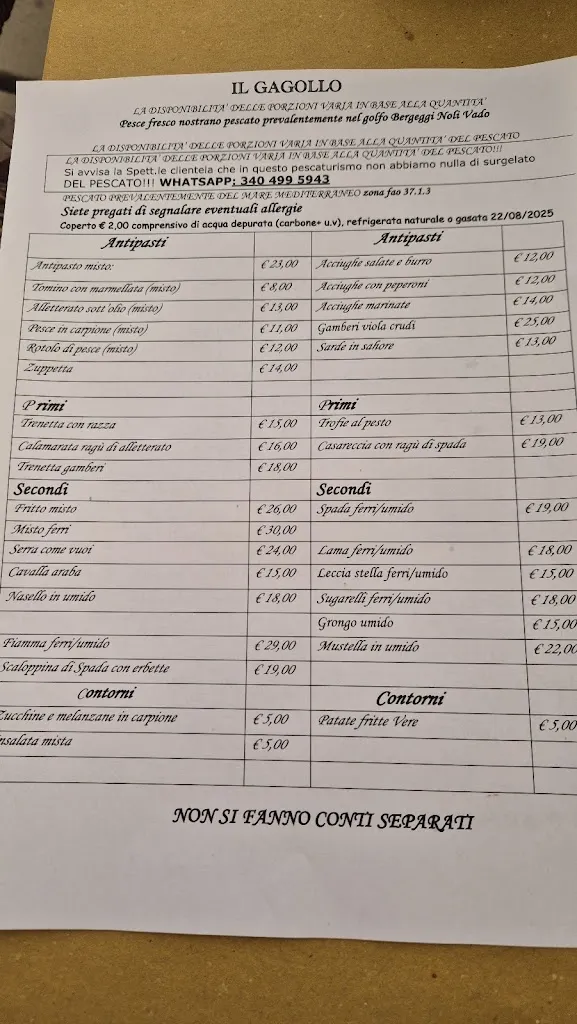 IL GAGOLLO
LA DISPONIBILITA' DELLE PORZIONI VARIA IN BASE ALLA QUANTITA'
Pesce fresco nostrano pescato prevalentemente nel golfo Bergeggi Noli Vado
LA DISPONIBILITA' DELLE PORZIONI VARIA IN BASE ALLA QUANTITA' DEL PESCATO
LA DISPONIBILITA' DELLE PORZIONI VARIA IN BASE ALLA QUANTITA' DEL PESCATO!!!
Si avvisa la Spett.le clientela che in questo pescaturismo non abbiamo nulla di surgelato
DEL PESCATO!!! WHATSAPP: 340 499 5943
PESCATO PREVALENTEMENTE DEL MARE MEDITERRANEO zona fao 37.1.3
Siete pregati di segnalare eventuali allergie
Coperto € 2,00 comprensivo di acqua depurata (carbone+ u.v), refrigerata naturale o gasata 22/08/2025
Antipasti Antipasti
Antipasto misto: € 23,00 Acciughe salate e burro € 12,00
Tomino con marmellata (misto) € 8,00 Acciughe con peperoni € 12,00
Alletterato sott'olio (misto) € 13,00 Acciughe marinate € 14,00
Pesce in carpione (misto) € 11,00 Gamberi viola crudi € 25,00
Rotolo di pesce (misto) € 12,00 Sarde in sahore € 13,00
Zuppetta € 14,00
Primi Primi
Trenetta con razza € 15,00 Trofie al pesto € 13,00
Calamarata ragù di alletterato € 16,00 Casareccia con ragù di spada € 19,00
Trenetta gamberi € 18,00
Secondi Secondi
Fritto misto € 26,00 Spada ferri/umido € 19,00
Misto ferri € 30,00
Serra come vuoi € 24,00 Lama ferri/umido € 18,00
Cavalla araba € 15,00 Leccia stella ferri/umido € 15,00
Nasello in umido € 18,00 Sugarelli ferri/umido € 18,00
Grongo umido € 15,00
Fiamma ferri/umido € 29,00 Mustella in umido € 22,00
Scaloppina di Spada con erbette € 19,00
Contorni Contorni
Zucchine e melanzane in carpione € 5,00 Patate fritte Vere € 5,00
nsalata mista € 5,00
NON SI FANNO CONTI SEPARATI